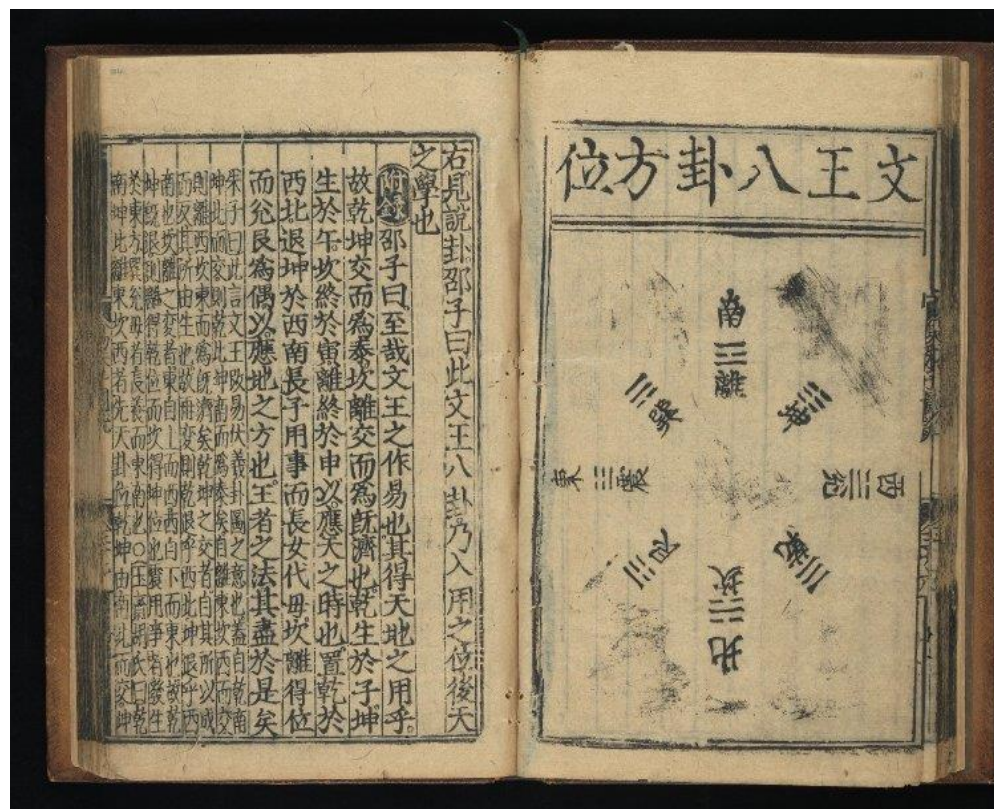 文王八卦方位
南
離
坤
西
兌
乾
北
坎
艮
東
震
巽
右見說卦邵子曰此文王八卦乃入用之位後天
之學也
附錄邵子曰至哉文王之作易也其得天地之用乎
故乾坤交而爲泰坎離交而爲旣濟也乾生於子坤
生於午坎終於寅離終於申以應天之時也置乾於
西北退坤於西南長子用事而長女代母坎離得位
而兊艮爲偶以應地之方也王者之法其盡於是矣
朱子曰此言文王改易伏羲卦圖之意也蓋自乾南
坤北而交則乾北坤南而爲泰矣自離東坎西而交
則離西坎東而爲旣濟矣乾坤之交者自其所以成
而反其所由生也故再變則乾退乎西北坤退乎西
南也坎離之變者東自上而西西自下而東也故乾
坤旣退則離得乾位而坎得坤位也震用事者發生
於東方巽代母者長養於東南也○玉齋胡氏曰乾
南坤北離東坎西者先天卦位乾坤由南北而交坤